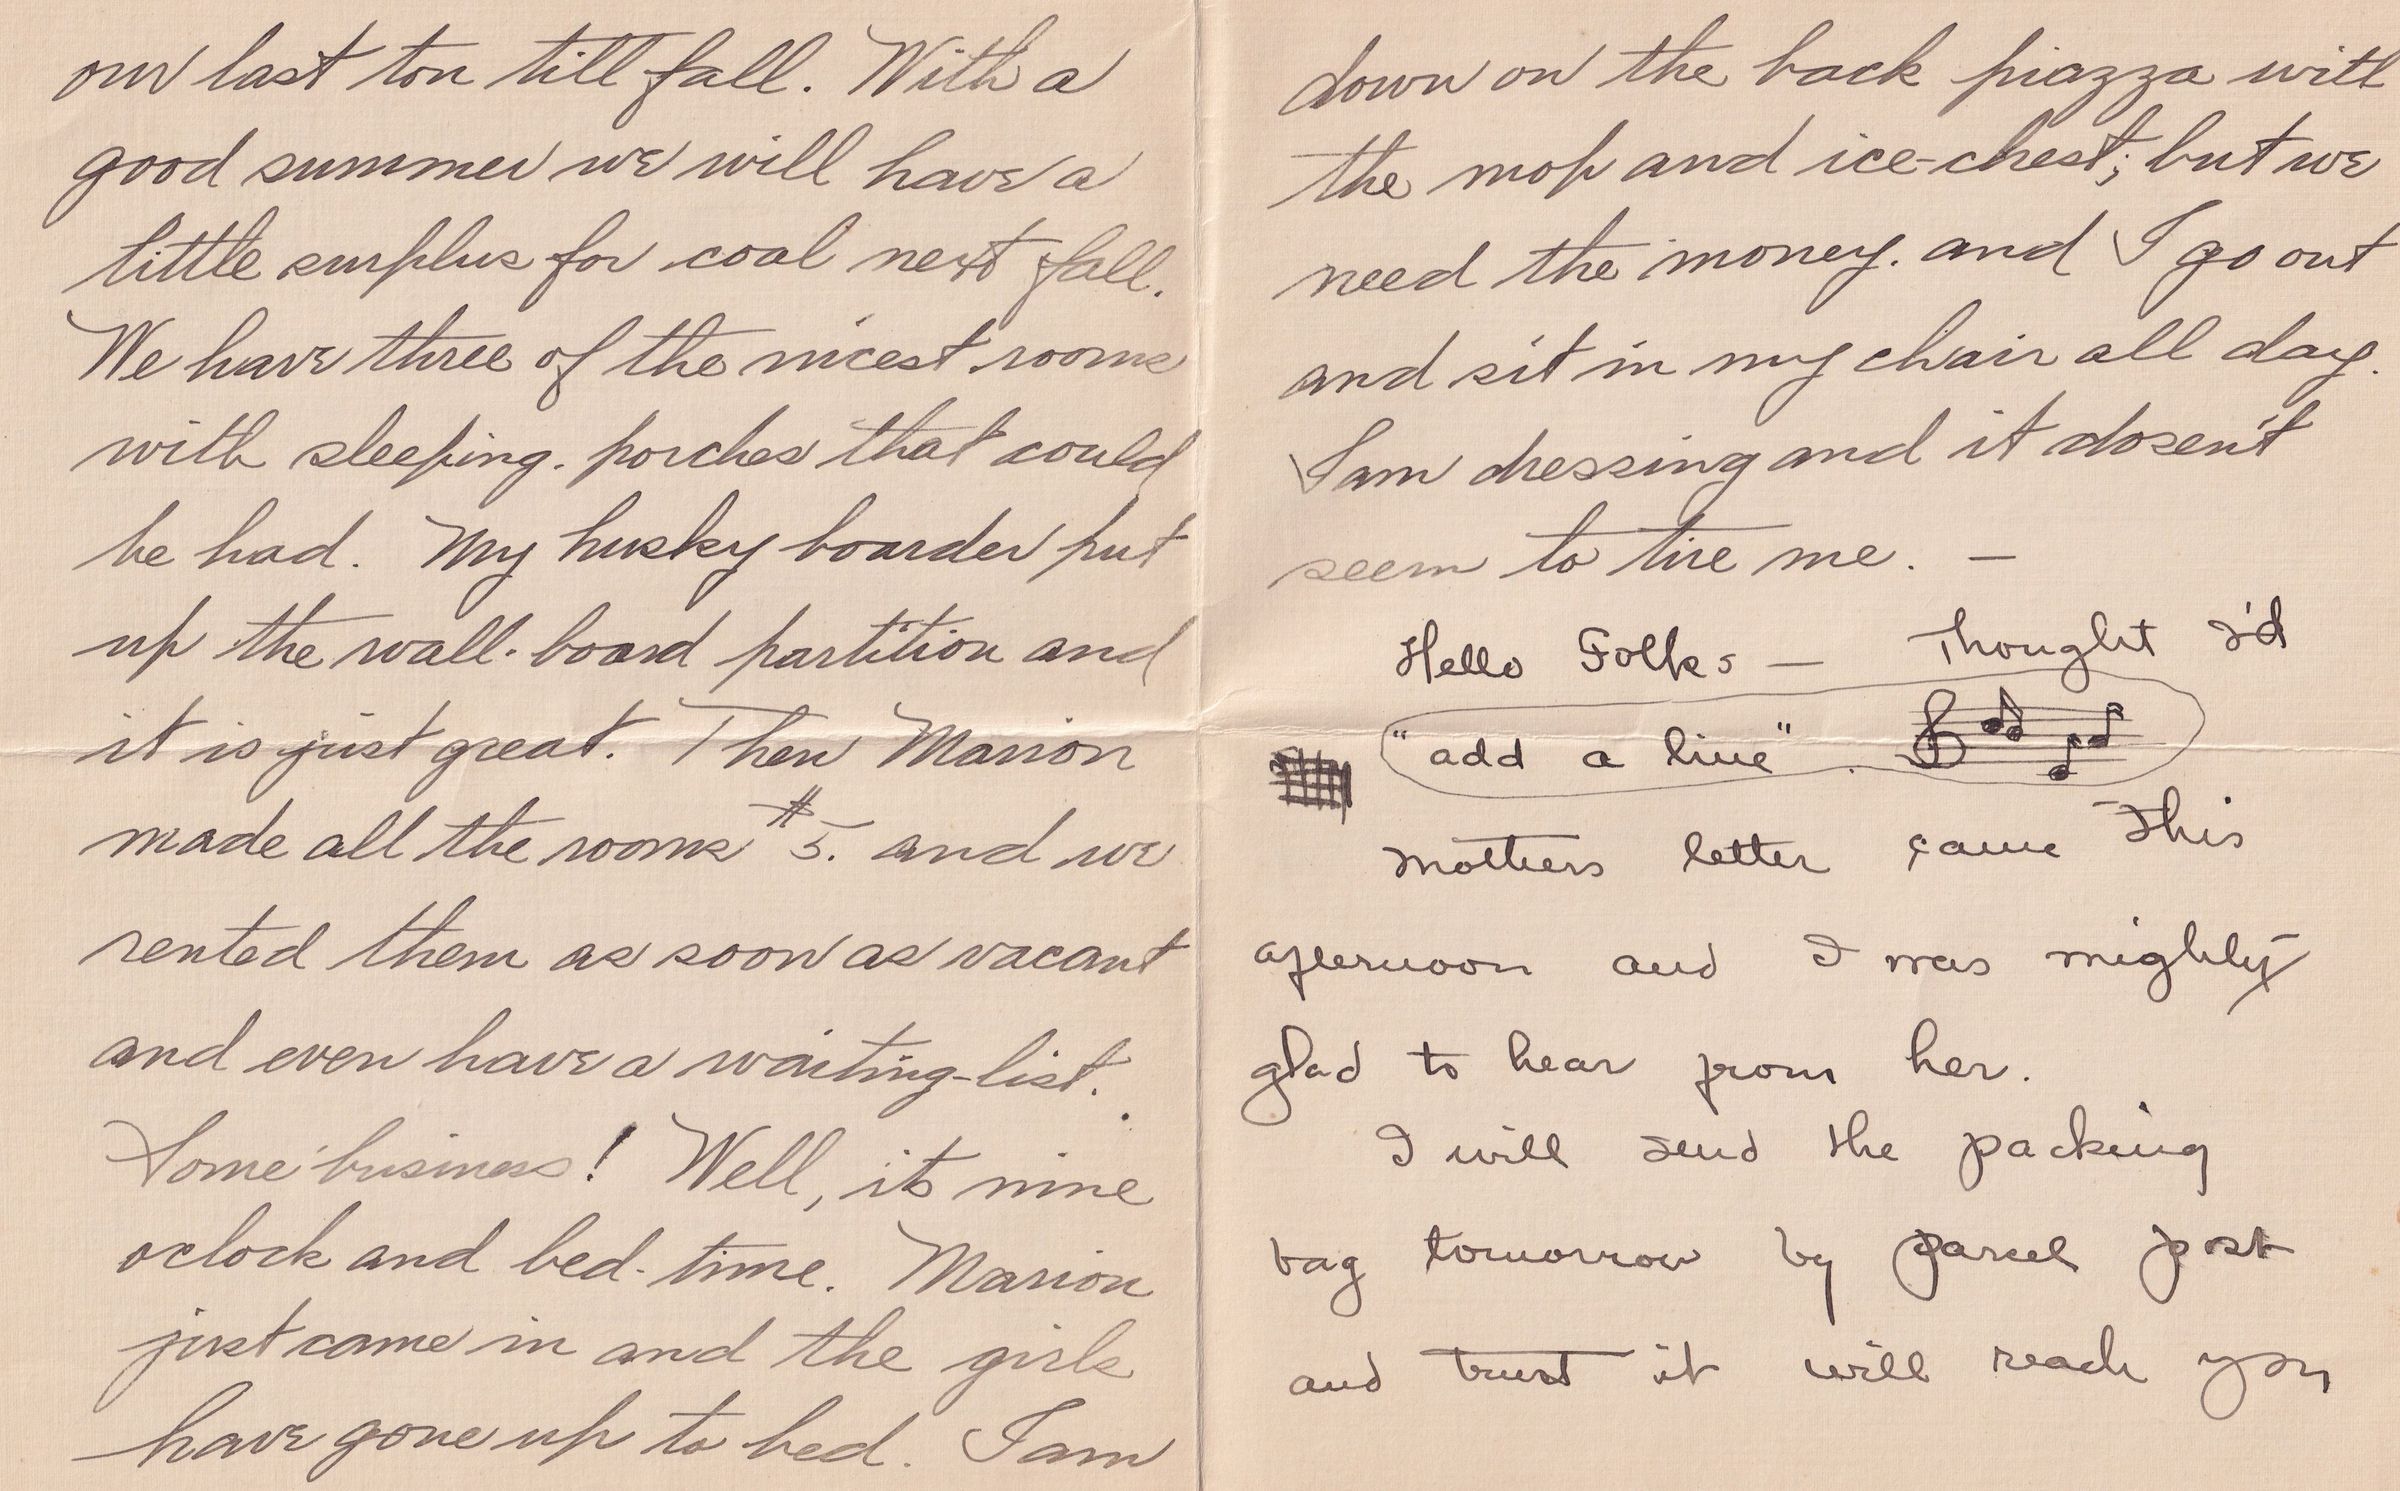 our last ton till fall. With a
good summer we will have a
little surplus for coal next fall.
We have three of the nicest rooms
with sleeping-porches that could
be had. My husky boarder put
up the wall-board partition and
it is just great. Then Marion
made all the rooms #5. and we
rented them as soon as vacant
and even have a waiting-list.
Some business! Well, its nine
oclock and bed-time. Marion
just came in and the girls
have gone up to bed. I am
down on the back piazza with
the mop and ice-chest; but we
need the money. and I go out
and sit in my chair all day.
I am dressing and it dosen't
seem to tire me. —
Hello Folks — Thought I'd
"add a line".
Mothers letter came this
afternoon and I was mighty
glad to hear from her.
I will send the packing
bag tomorrow by parcel post
and trust it will reach you